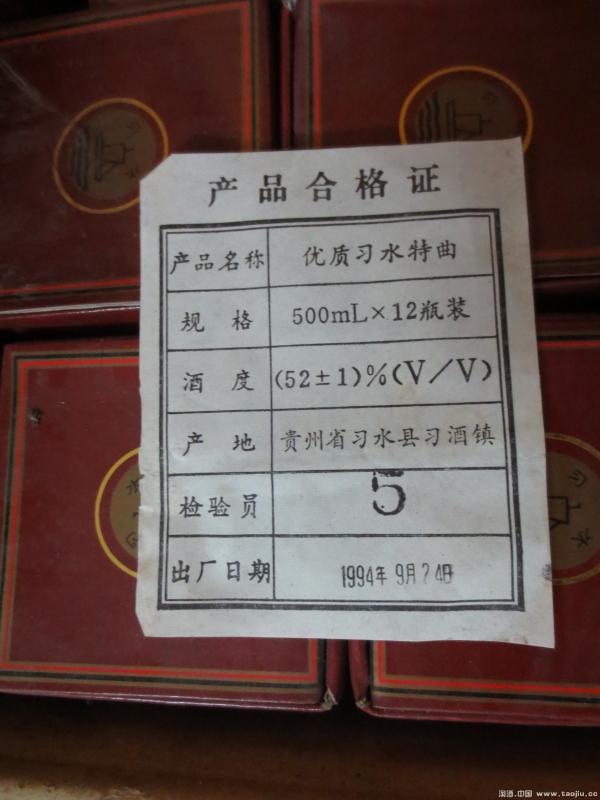 产品合格证
产品名称 优质习水特曲
规格 500mL×12瓶装
酒度 (52±1)%(V/V)
产地 贵州省习水县习酒镇
检验员 5
出厂日期 1994年9月24日
淘酒.中国 www.taojiu.cc